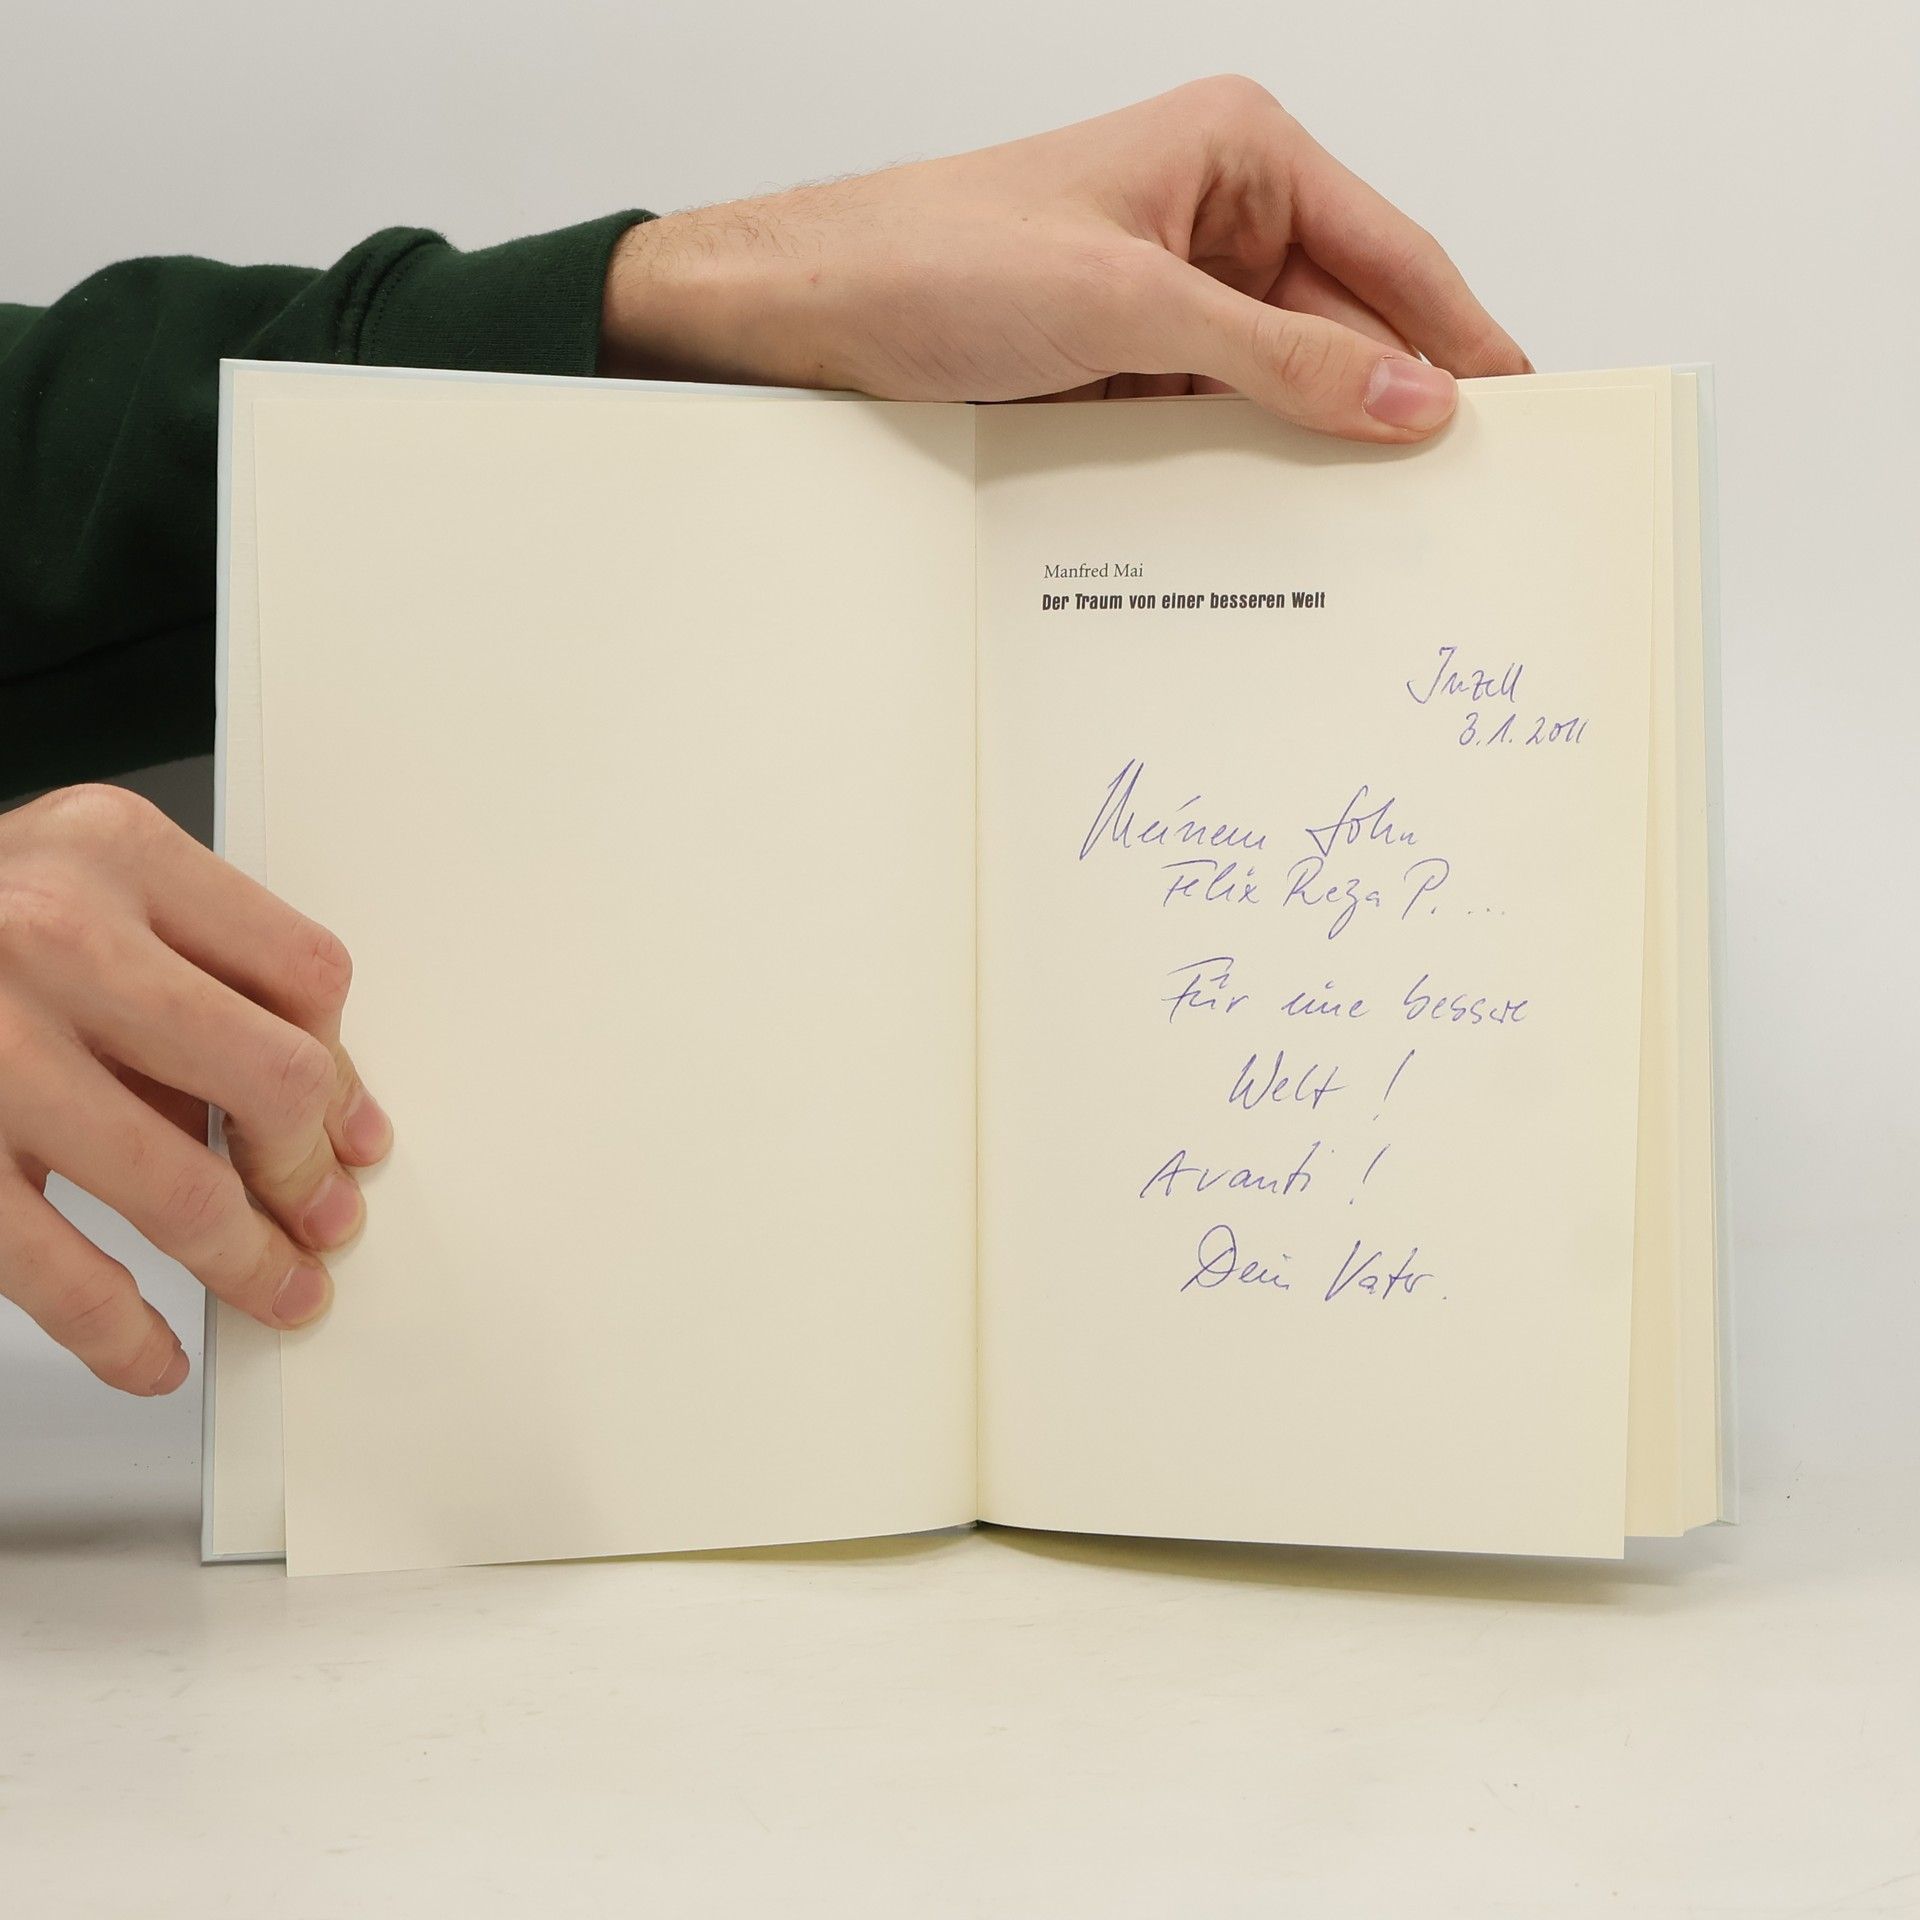 Manfred Mai
Der Traum von einer besseren Welt
Inzell
3.1.2011
Meinem Sohn
Felix Reza P. ...
Für eine bessere
Welt!
Avanti!
Dein Vater.